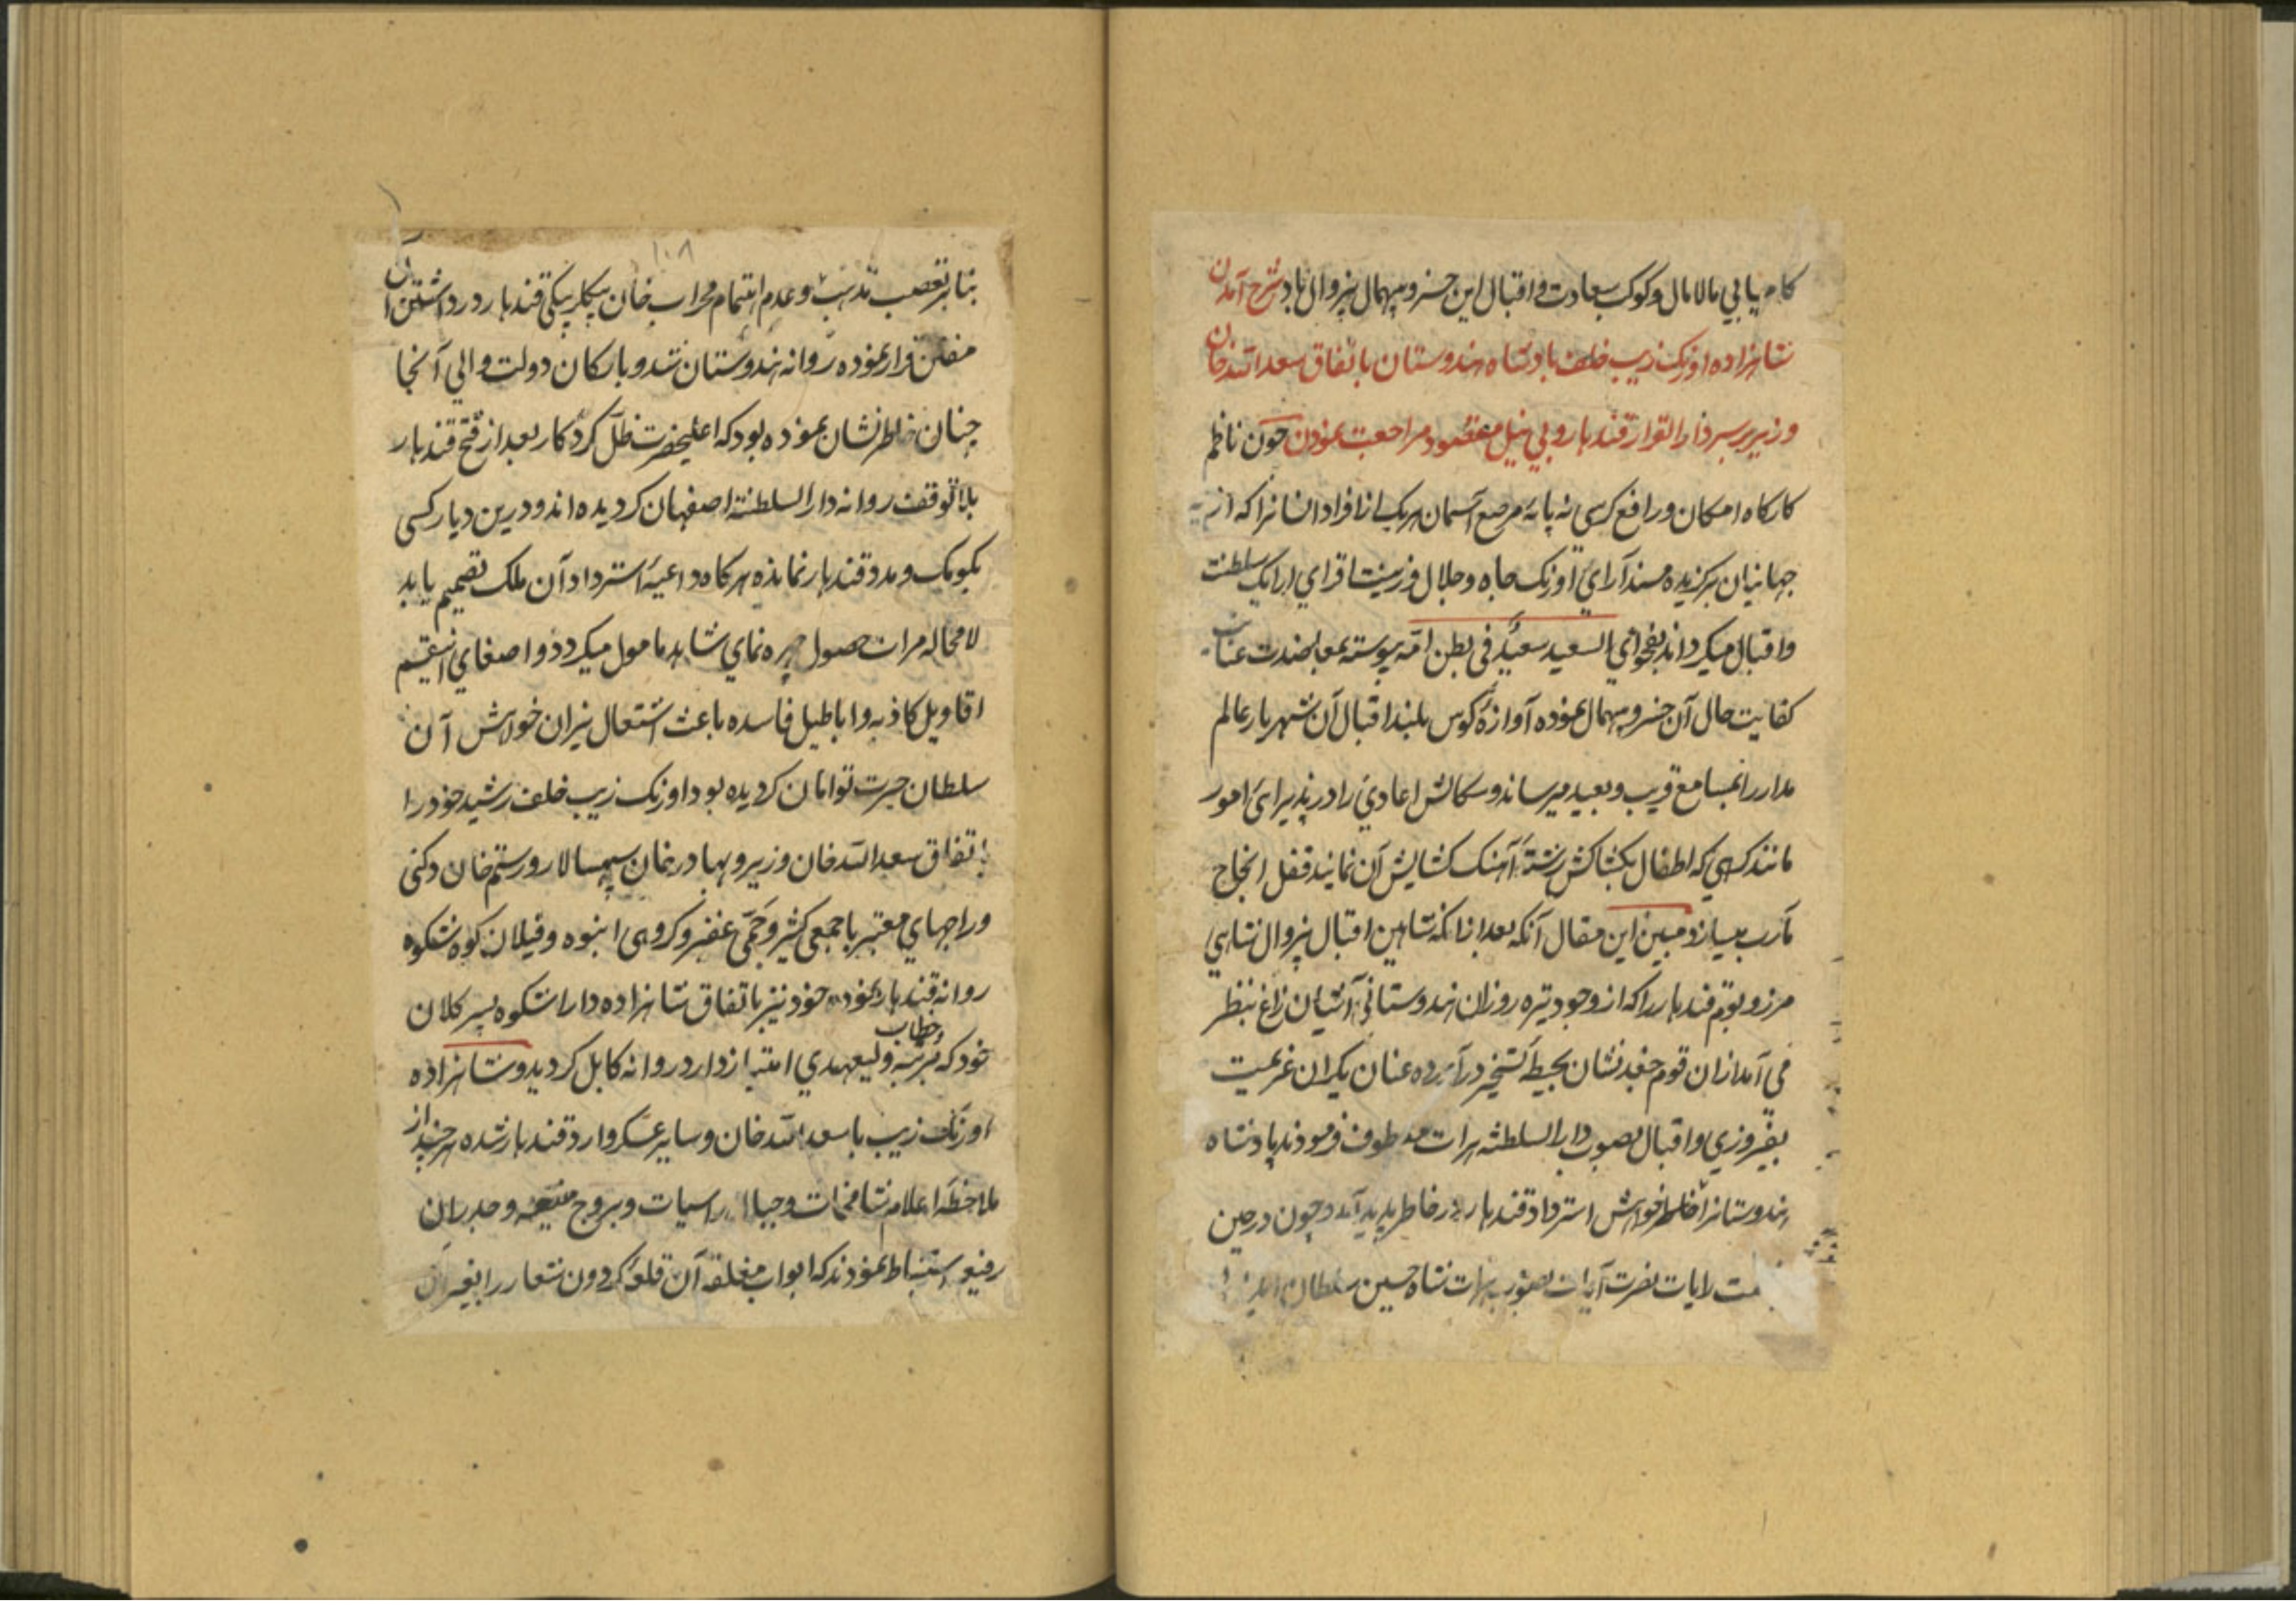 کامیابی مالامال وکوکب سعادت واقبال این خسرو بیهمال بیزوال باد شرح آمدن
شاهزاده اورنک زیب خلف بادشاه هندوستان باتفاق سعدالله خان
وزیر بر سر دارالقرار قندهار و بی نیل مقصود مراجعت نمودن چون ناظم
کارکاه امکان ورافع کرسی نه پایهٔ مرصع آسمان هریک از افراد انسانرا که از
جهانیان برکزیده مسند آرای اورنک جاه وجلال وزینت افزای اریک سلطنت
واقبال میکرداند بفحوای السعید سعید فی بطن امه پیوسته بمعاضدت عنایت
کفایت حال آن خسرو بیهمال نموده آوازهٔ کوس بلند اقبال آن شهریار عالم
مدار را بمسامع قریب وبعید میرساند وسکالش اعادی را در پذیرایی امور
مانند کرهی که اطفال بکشاکش رشته آهنک کشایش آن نمایند قفل انجاح
مآرب میسازد مبین این مقال آنکه بعد از آنکه شاهین اقبال بیزوال شاهی
مرز وبوم قندهار را که از وجود تیره روزان هندوستانی آشیان زاغ بنظر
می آمد از آن قوم جغد نشان بحیطهٔ تسخیر درآورده عنان یکران عزیمت
بفیروزی واقبال بصوب دارالسلطنه هرات معطوف فرمودند پادشاه
هندوستانرا خواهش استرداد قندهار در خاطر پدید آمد وچون در حین
رایات نصرت آیات بصوب هرات شاه حسین سلطان
۱۰۸
بنابر تعصب مذهب وعدم اهتمام محراب خان بیکلربیکی قندهار در داشتن آن
مفتن فرار نموده روانه هندوستان شد وبارکان دولت والی آنجا
چنان خاطر نشان نموده بود که اعلیحضرت ظل کردکار بعد از فتح قندهار
بلاتوقف روانه دارالسلطنه اصفهان کردیده اند ودرین دیار کسی
بکومک ومدد قندهار نمانده هرکاه داعیهٔ استرداد آن ملک تصمیم یابد
لامحاله مرات حصول چهره نمای شاهد مامول میکردد واصغای این قسم
اقاویل کاذبه واباطیل فاسده باعث اشتعال نیران خواهش آن
سلطان حیرت توامان کردیده بود اورنک زیب خلف رشید خود را
باتفاق سعدالله خان وزیر وبهادرخان سپهسالار ورستم خان دکنی
وراجهای معتبر با جمعی کثیر وجمی غفیر وکروهی انبوه وفیلان کوه شکوه
روانه قندهار نموده خود نیز باتفاق شاهزاده داراشکوه پسر کلان
خود که بمرتبه وخطاب ولیعهدی امتیاز دارد روانه کابل کردید وشاهزاده
اورنک زیب با سعدالله خان وسایر عسکر وارد قندهار شده هرچند از
ملاحظه اعلام شامخات وجبال راسیات وبروج منیعه وجدران
رفیعه استنباط نمودند که ابواب مغلقه آن قلعهٔ کردون شعار را بغیر از